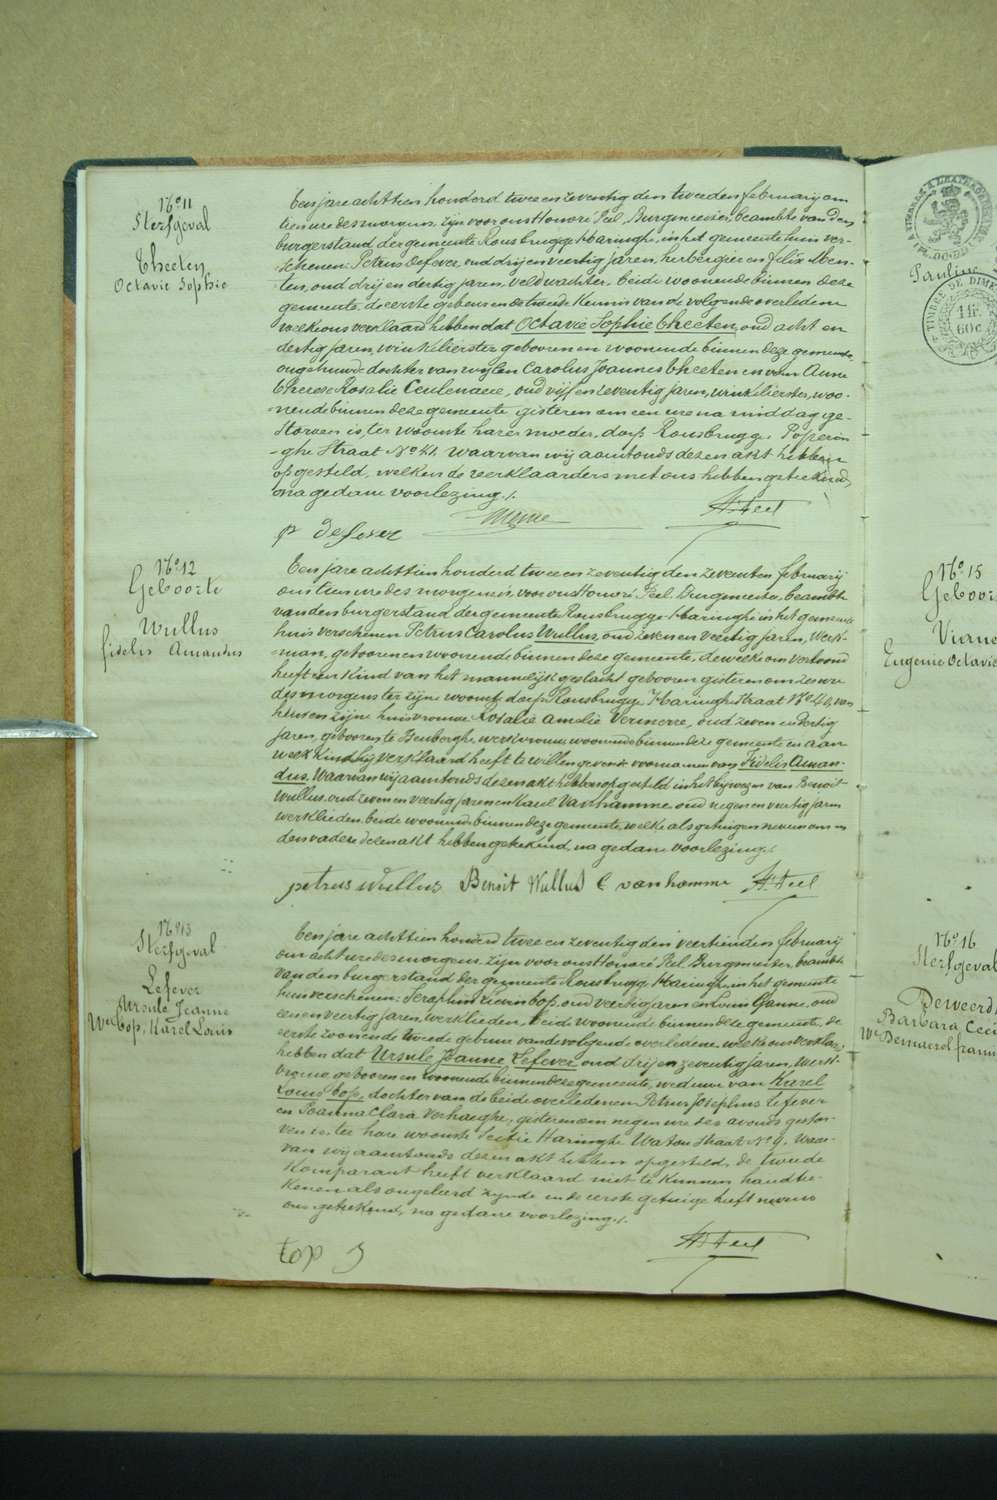 N° 11
Sterfgeval
Theeten
Octavie Sophie
Een jare achttien honderd twee en zeventig den tweeden february om
tien ure des morgens, zijn voor ons Honoré Peel, Burgmeester, beambte van den
burgerstand der gemeente Rousbrugge-Haringhe, in het gemeente huis ver-
schenen: Petrus Defever, oud drij en veertig jaren, herbergier en Felix
oud drij en dertig jaren, veldwachter, beide woonende binnen deze
gemeente, de eerste gebuer en de tweede kennis van de volgende overledene
welke ons verklaard hebben dat Octavie Sophie Theeten, oud acht en
dertig jaren, winkelierster, gebooren en woonende binnen deze gemeente,
ongehuwde dochter van wijlen Carolus Joannes Theeten en van Anne
Therese Rosalie Ceulenaere, oud vijf en zeventig jaren, winkelierster, woo-
nende binnen deze gemeente, gisteren om een ure na middag ge-
storven is, ter woonste harer moeder, dorp Rousbrugge, Poperin-
ghe Straat N° 41. Waarvan wij aanstonds dezen akt hebben
opgesteld, welken de verklaarders met ons hebben geteekend,
na gedane voorlezing /.
p defever
H. Peel
N° 12
Geboorte
Wullus
fidelis Amandus
Een jare achttien honderd twee en zeventig den zevensten february
om tien ure des morgens, voor ons Honoré Peel Burgmeester, beambte
van den burgerstand der gemeente Rousbrugge-Haringhe in het gemeente
huis verschenen Petrus Carolus Wullus, oud zeven en veertig jaren, werk-
man, gebooren en woonende binnen deze gemeente, dewelke ons vertoond
heeft een kind van het mannelijk geslacht gebooren gisteren om zes ure
des morgens ter zijne woonst, dorp Rousbrugge Haringhe straat N° 40, van
hem en zijne huisvrouwe Rosalie Amelie Vermerre, oud zeven en dertig
jaren, gebooren te werkvrouw, woonende binnen deze gemeente en aan
welk kind hij verklaard heeft te willen geven de voornamen van Fidelis Aman-
dus. Waarvan wij aanstonds dezen akt hebben opgesteld in het bijwezen van Benoit
Wullus, oud zeven en veertig jaren en Karel Vanhamme, oud negen en veertig jaren
werklieden, beide woonende binnen deze gemeente, welke als getuigen nevens ons en
den vader dezen akt hebben geteekend, na gedane voorlezing /.
petrus wullus Benoit Wullus C vanhamme H. Peel
N° 13
Sterfgeval
Lefever
Ursule Jeanne
Wwe Top, Karel Louis
Een jare achttien honderd twee en zeventig den veertienden february
om acht ure des morgens, zijn voor ons Honoré Peel, Burgmeester, beambte
van den burgerstand der gemeente Rousbrugge Haringhe, in het gemeente
huis verschenen: Seraphin Lievin Top, oud veertig jaren en Louis Ganne, oud
een en veertig jaren, werklieden, beide woonende binnen deze gemeente, de
eerste zoon en de tweede gebuer van de volgende overledene, welke ons verklaard
hebben dat Ursule Jeanne Lefever oud drij en zeventig jaren, werk-
vrouw gebooren en woonende binnen deze gemeente, weduwe van Karel
Louis Top, dochter van de beide overledenen Petrus Josephus Lefever
en Joanna Clara Verhaeghe, gisteren om negen ure des avonds gestor-
ven is, ter hare woonste Sectie Haringhe Watou Straat N° 9. Waar-
van wij aanstonds dezen akt hebben opgesteld, de tweede
komparant heeft verklaard niet te kunnen handtee-
kenen als ongeleerd zijnde en de eerste getuige heeft nevens
ons geteekend, na gedane voorlezing /.
top S
H. Peel
Pauline
TIMBRE DE DIME
1 fr.
60 c.
N° 15
Geboor
Eugenie Octavie
N° 16
Sterfgeval
Deweerd
Barbara Ceci
We Demaerel frann